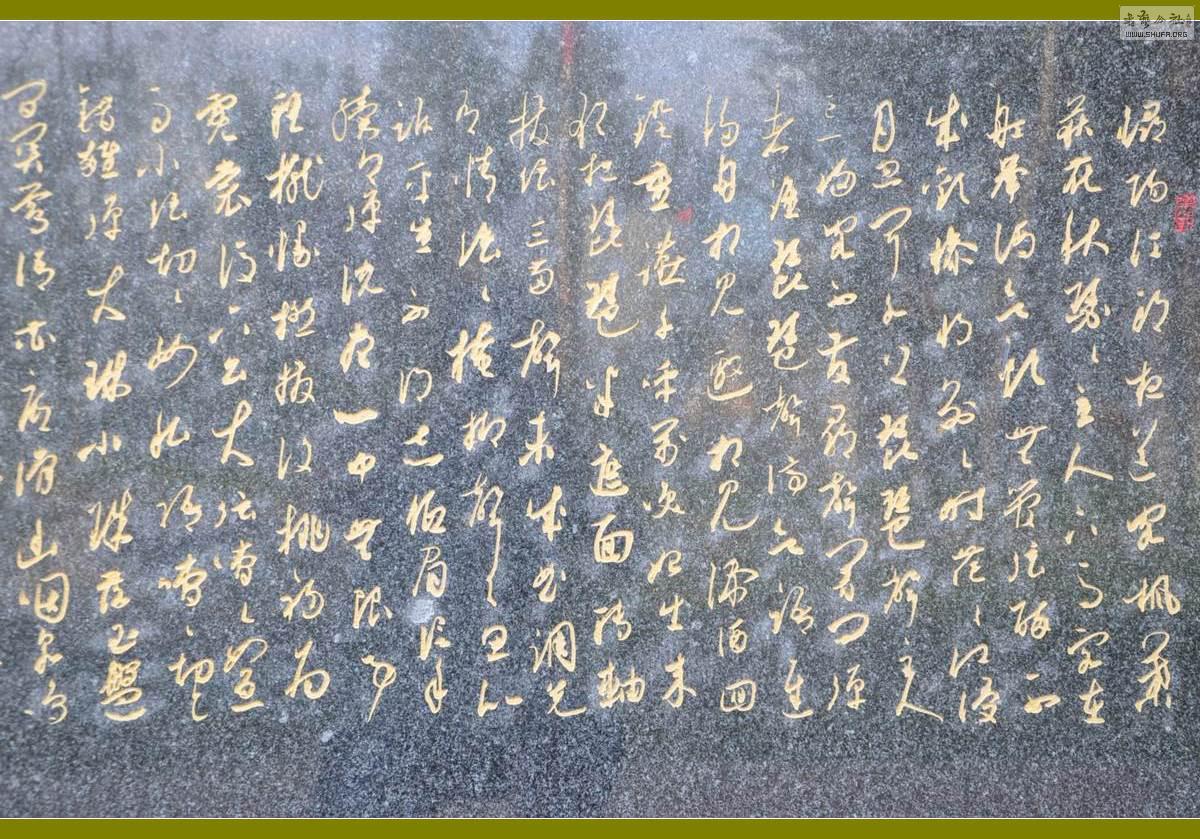 潯陽江頭夜送客楓葉
荻花秋瑟瑟主人下馬客在
船舉酒欲飲無管弦醉不
成歡慘將別別時茫茫江浸
月忽聞水上琵琶聲主人
忘歸客不發尋聲闇問彈
者誰琵琶聲停欲語遲
移舟相見邀相見添酒回
燈重讌千呼萬喚始出來
猶抱琵琶半遮面轉軸
撥弦三兩聲未成曲調先
有情弦弦掩抑聲聲思似
訴平生不得志低眉信手
續續彈說盡心中無限事
輕攏慢撚撥復挑初為
霓裳後六幺大弦嘈嘈急
雨小弦切切如私語嘈嘈切切
錯雜彈大珠小珠落玉盤
間關鶯語花底滑幽咽泉流
WWW.SHUFA.ORG